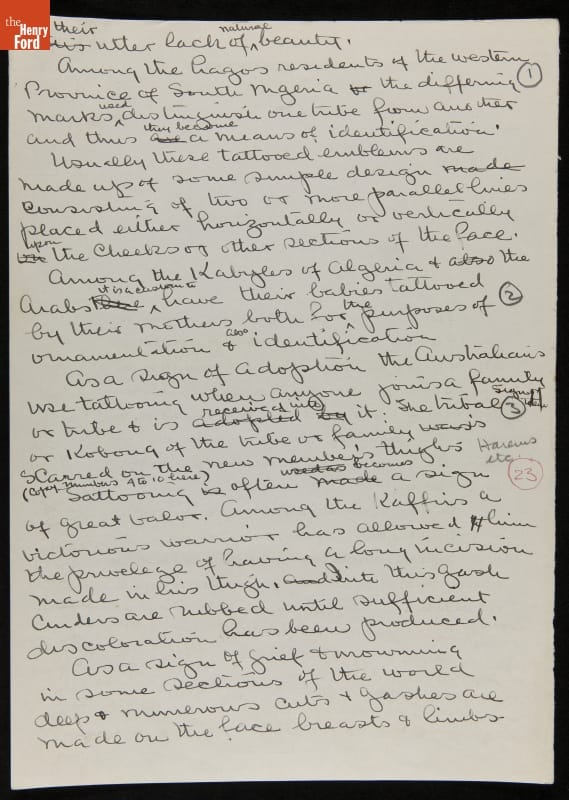 the
Henry
Ford
their
his utter lack of natural beauty.
Among the Lagos residents of the western
Province of South Nigeria or the differing ①
marks used distinguish one tribe from another
and thus are they become a means of identification.
Usually these tattooed emblems are
made up of some simple design made
consisting of two or more parallel lines
placed either horizontally or vertically
upon the cheeks or other sections of the face.
Among the Kabyles of Algeria & also the
Arabs it is customary have their babies tattooed
by their mothers both for the purposes of ②
ornamentation & also identification
As a sign of adoption the Australians
use tattooing when anyone joins a family
or tribe & is adopted by received into it. The tribal sign ③
or Kobong of the tribe or family was is
scarred on the new members thighs Harems
etc.
(Copy numbers 4 to 10 here) 23
Tattooing is often made used as becomes a sign
of great valor. Among the Kaffirs a
victorious warrior has allowed him
the privelege of having a long incision
made in his thigh, and into this gash
cinders are rubbed until sufficient
discoloration has been produced.
As a sign of grief & mourning
in some sections of the world
deep & numerous cuts & gashes are
made on the face breasts & limbs